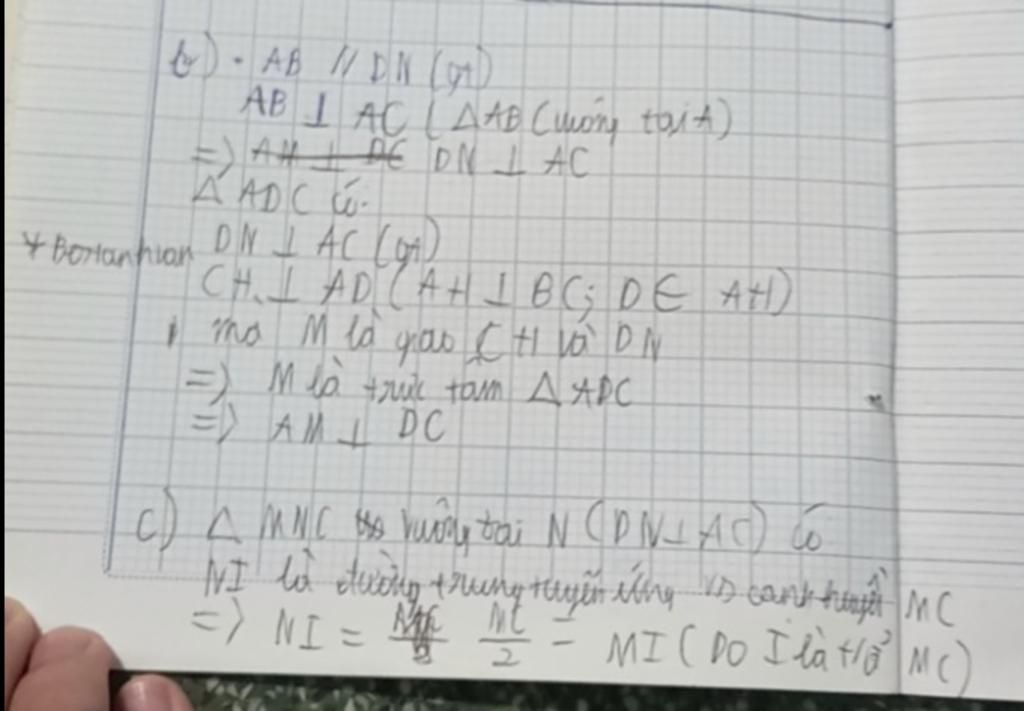 b) · AB // DN (gt)
AB ⊥ AC ( Δ ABC vuông tại A)
=> AH ⊥ DC DN ⊥ AC
Δ ADC có:
DN ⊥ AC (gt)
CH ⊥ AD ( AH ⊥ BC; D ∈ AH)
mà M là giao CH và DN
=> M là trực tâm Δ ADC
=> AM ⊥ DC
c) Δ MNC vuông tại N ( DN ⊥ AC) có
NI là đường trung tuyến ứng vs cạnh huyền MC
=> NI = MC/2 = MI ( DO I là tđ MC)